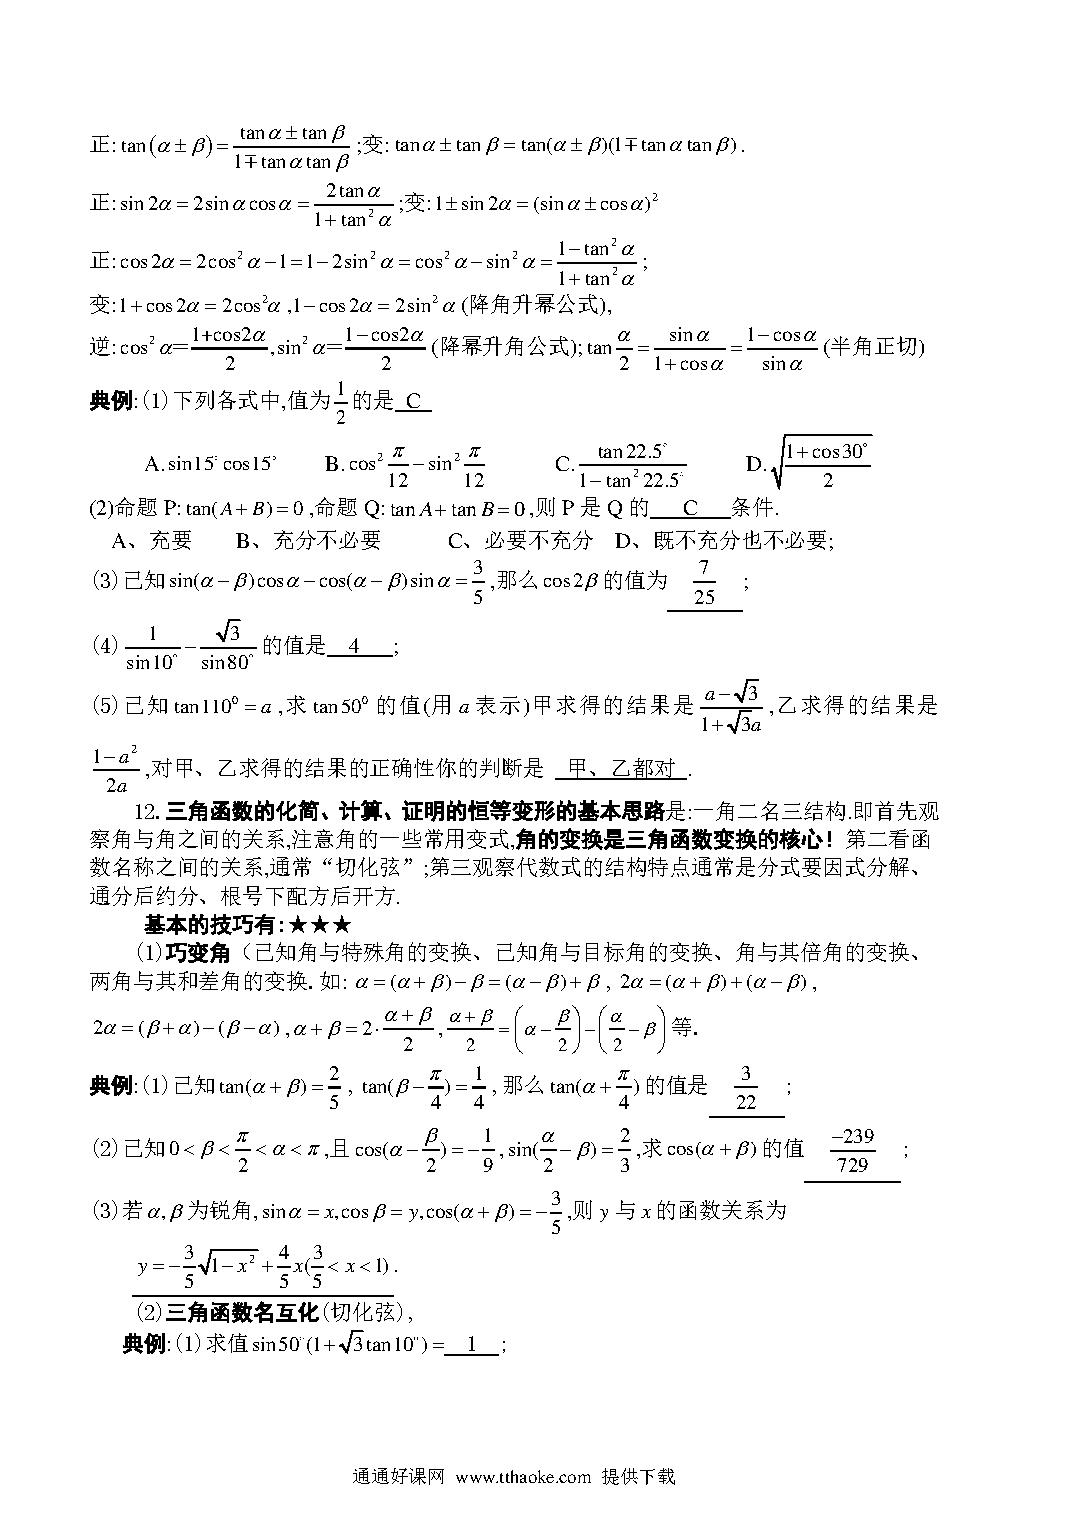 正:tan(α±β)=(tanα±tanβ)/(1∓tanαtanβ);变:tanα±tanβ=tan(α±β)(1∓tanαtanβ).
正:sin2α=2sinαcosα=2tanα/(1+tan²α);变:1±sin2α=(sinα±cosα)²
正:cos2α=2cos²α−1=1−2sin²α=cos²α−sin²α=(1−tan²α)/(1+tan²α);
变:1+cos2α=2cos²α,1−cos2α=2sin²α(降角升幂公式),
逆:cos²α=(1+cos2α)/2,sin²α=(1−cos2α)/2(降幂升角公式);tan α/2=sinα/(1+cosα)=(1−cosα)/sinα(半角正切)
典例:(1)下列各式中,值为1/2的是 C
A.sin15°cos15° B.cos²π/12−sin²π/12 C.tan22.5°/(1−tan²22.5°) D.√((1+cos30°)/2)
(2)命题P:tan(A+B)=0,命题Q:tanA+tanB=0,则P是Q的 C 条件.
A、充要 B、充分不必要 C、必要不充分 D、既不充分也不必要;
(3)已知sin(α−β)cosα−cos(α−β)sinα=3/5,那么cos2β的值为 7/25 ;
(4)1/sin10°−√3/sin80°的值是 4 ;
(5)已知tan110⁰=a,求tan50⁰的值(用a表示)甲求得的结果是(a−√3)/(1+√3a),乙求得的结果是
(1−a²)/2a,对甲、乙求得的结果的正确性你的判断是 甲、乙都对 .
12.三角函数的化简、计算、证明的恒等变形的基本思路是:一角二名三结构.即首先观
察角与角之间的关系,注意角的一些常用变式,角的变换是三角函数变换的核心!第二看函
数名称之间的关系,通常“切化弦”;第三观察代数式的结构特点通常是分式要因式分解、
通分后约分、根号下配方后开方.
基本的技巧有:★★★
(1)巧变角(已知角与特殊角的变换、已知角与目标角的变换、角与其倍角的变换、
两角与其和差角的变换.如:α=(α+β)−β=(α−β)+β,2α=(α+β)+(α−β),
2α=(β+α)−(β−α),α+β=2·(α+β)/2,(α+β)/2=(α−β/2)−(α/2−β)等.
典例:(1)已知tan(α+β)=2/5,tan(β−π/4)=1/4,那么tan(α+π/4)的值是 3/22 ;
(2)已知0<β<π/2<α<π,且cos(α−β/2)=−1/9,sin(α/2−β)=2/3,求cos(α+β)的值 −239/729 ;
(3)若α,β为锐角,sinα=x,cosβ=y,cos(α+β)=−3/5,则y与x的函数关系为
y=−3/5√(1−x²)+4/5x(3/5<x<1).
(2)三角函数名互化(切化弦),
典例:(1)求值sin50°(1+√3tan10°)= 1 ;
通通好课网 www.tthaoke.com 提供下载